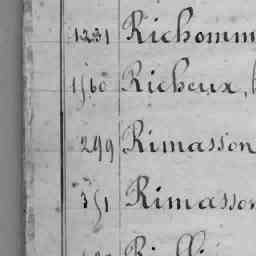 1231 Richomm
1560 Richeux,
299 Rimasson
351 Rimasson